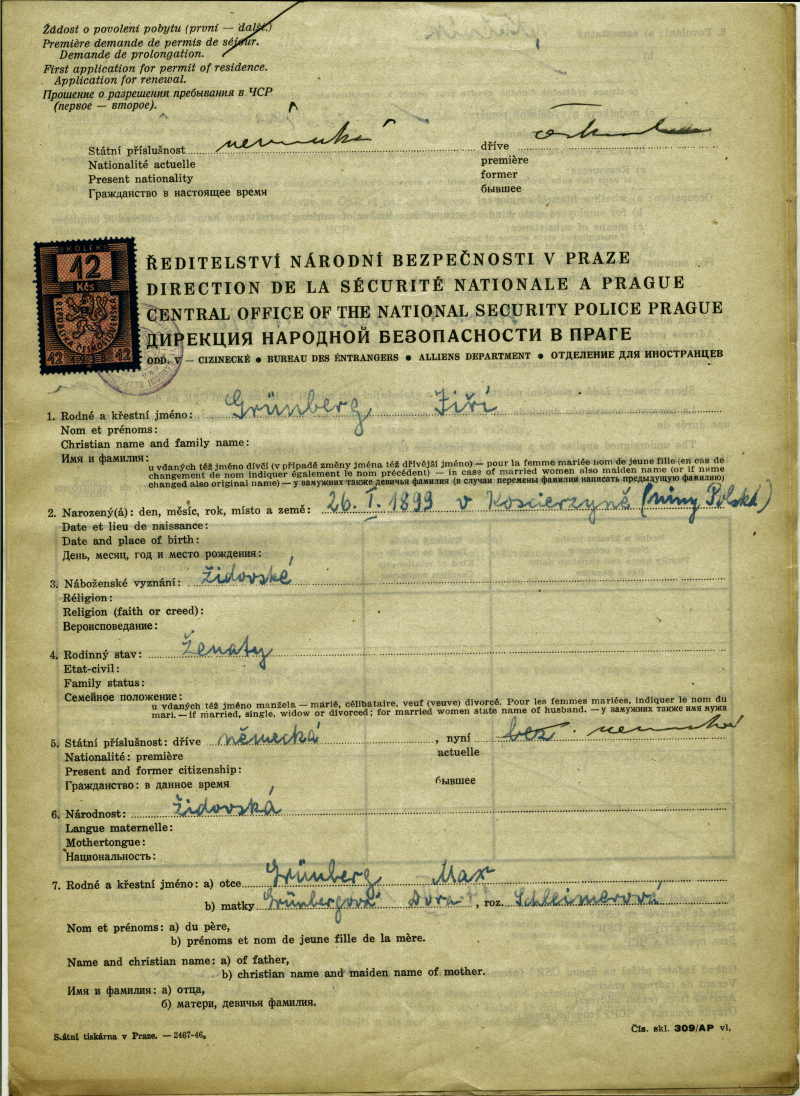 Žádost o povolení pobytu (první — další.)
Première demande de permis de séjour.
Demande de prolongation.
First application for permit of residence.
Application for renewal.
Прошение о разрешения пребывания в ЧСР
(первое — второе).
Státní příslušnost německá dříve
Nationalité actuelle première
Present nationality former
Гражданство в настоящее время бывшее
12
Kčs
REPUBLIKA ČESKOSLOVENSKÁ
12 12
ŘEDITELSTVÍ NÁRODNÍ BEZPEČNOSTI V PRAZE
DIRECTION DE LA SÉCURITÉ NATIONALE A PRAGUE
CENTRAL OFFICE OF THE NATIONAL SECURITY POLICE PRAGUE
ДИРЕКЦИЯ НАРОДНОЙ БЕЗОПАСНОСТИ В ПРАГЕ
ODD. V — CIZINECKÉ ● BUREAU DES ÉNTRANGERS ● ALLIENS DEPARTMENT ● ОТДЕЛЕНИЕ ДЛЯ ИНОСТРАНЦЕВ
1. Rodné a křestní jméno: Grünberg Jiří
Nom et prénoms:
Christian name and family name:
Имя и фамилия:
u vdaných též jméno dívčí (v případě změny jména též dřívější jméno) — pour la femme mariée nom de jeune fille (en cas de
changement de nom indiquer également le nom précédent) — in case of married women also maiden name (or if name
changed also original name) — у замужних также девичья фамилия (в случаи перемены фамилии написать предыдущую фамилию)
2. Narozený(á): den, měsíc, rok, místo a země: 26. I. 1899 v Koscierzyně (nyní Polská)
Date et lieu de naissance:
Date and place of birth:
День, месяц, год и место рождения:
3. Náboženské vyznání: židovské
Réligion:
Religion (faith or creed):
Вероисповедание:
4. Rodinný stav: ženatý
Etat-civil:
Family status:
Семейное положение:
u vdaných též jméno manžela — marié, célibataire, veuf (veuve) divorcé. Pour les femmes mariées, indiquer le nom du
mari. — if married, single, widow or divorced; for married women state name of husband. — у замужних также имя мужа
5. Státní příslušnost: dříve německá , nyní bez německá
Nationalité: première actuelle
Present and former citizenship:
Гражданство: в данное время бывшее
6. Národnost: Židovská
Langue maternelle:
Mothertongue:
Национальность:
7. Rodné a křestní jméno: a) otce Grünberg Max
b) matky Grünbergová Dora , roz. Schleimerová
Nom et prénoms: a) du père,
b) prénoms et nom de jeune fille de la mère.
Name and christian name: a) of father,
b) christian name and maiden name of mother.
Имя и фамилия: а) отца,
б) матери, девичья фамилия.
Státní tiskárna v Praze. — 2467-46. Čís. skl. 309/AP vl.